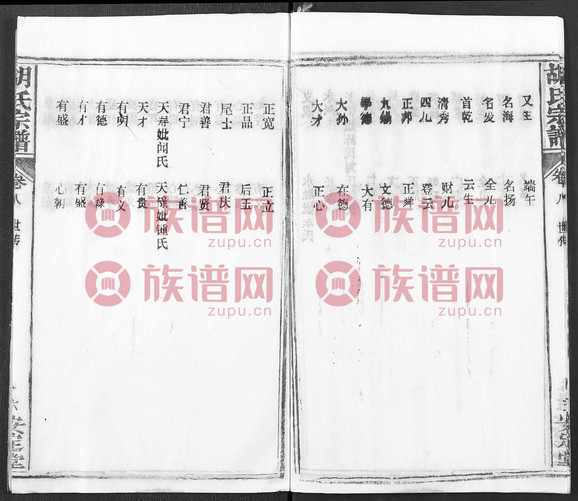 胡氏宗譜
卷八
世传
又主 端午
名海 名扬
名发 全九
首乾 云生
清秀 财九
四九 登云
正邦 正舜
九锡 文德
學德 大有
大孙 在德
大才 正心
正宽 正立
正品 后玉
尾士 君庆
君善 君贤
君宁 仁善
天春妣闻氏 天禄妣
天才 有贵
有明 有义
有德
有才 有盛
有盛 心朝
胡氏宗譜
卷八
世传
族谱网
zupu.cn
族谱网
zupu.cn
族谱网
zupu.cn
族谱网
zupu.cn